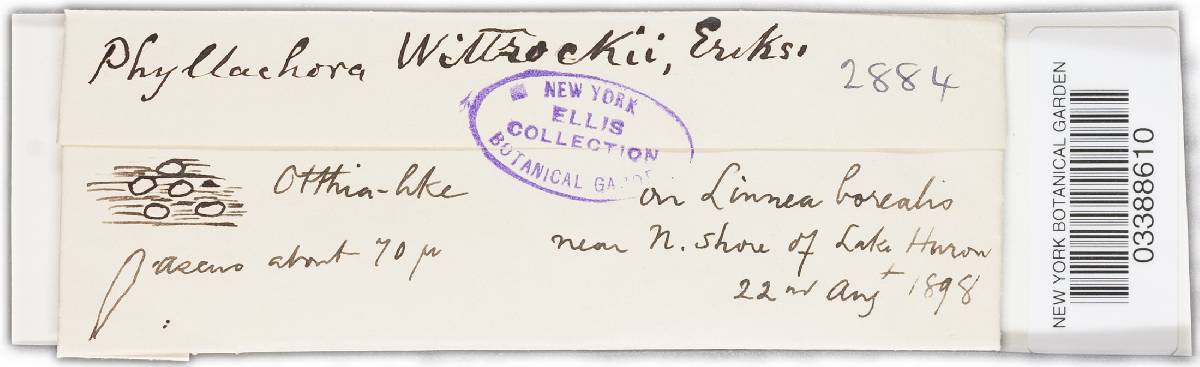 Phyllachora Wittrockii, Eriks.
2884
NEW YORK
ELLIS
COLLECTION
BOTANICAL GARDE
Otthia-like
on Linnea borealis
ascus about 70 μ
near N. shore of Lake Huron
22nd Augt 1898
NEW YORK BOTANICAL GARDEN
03388610